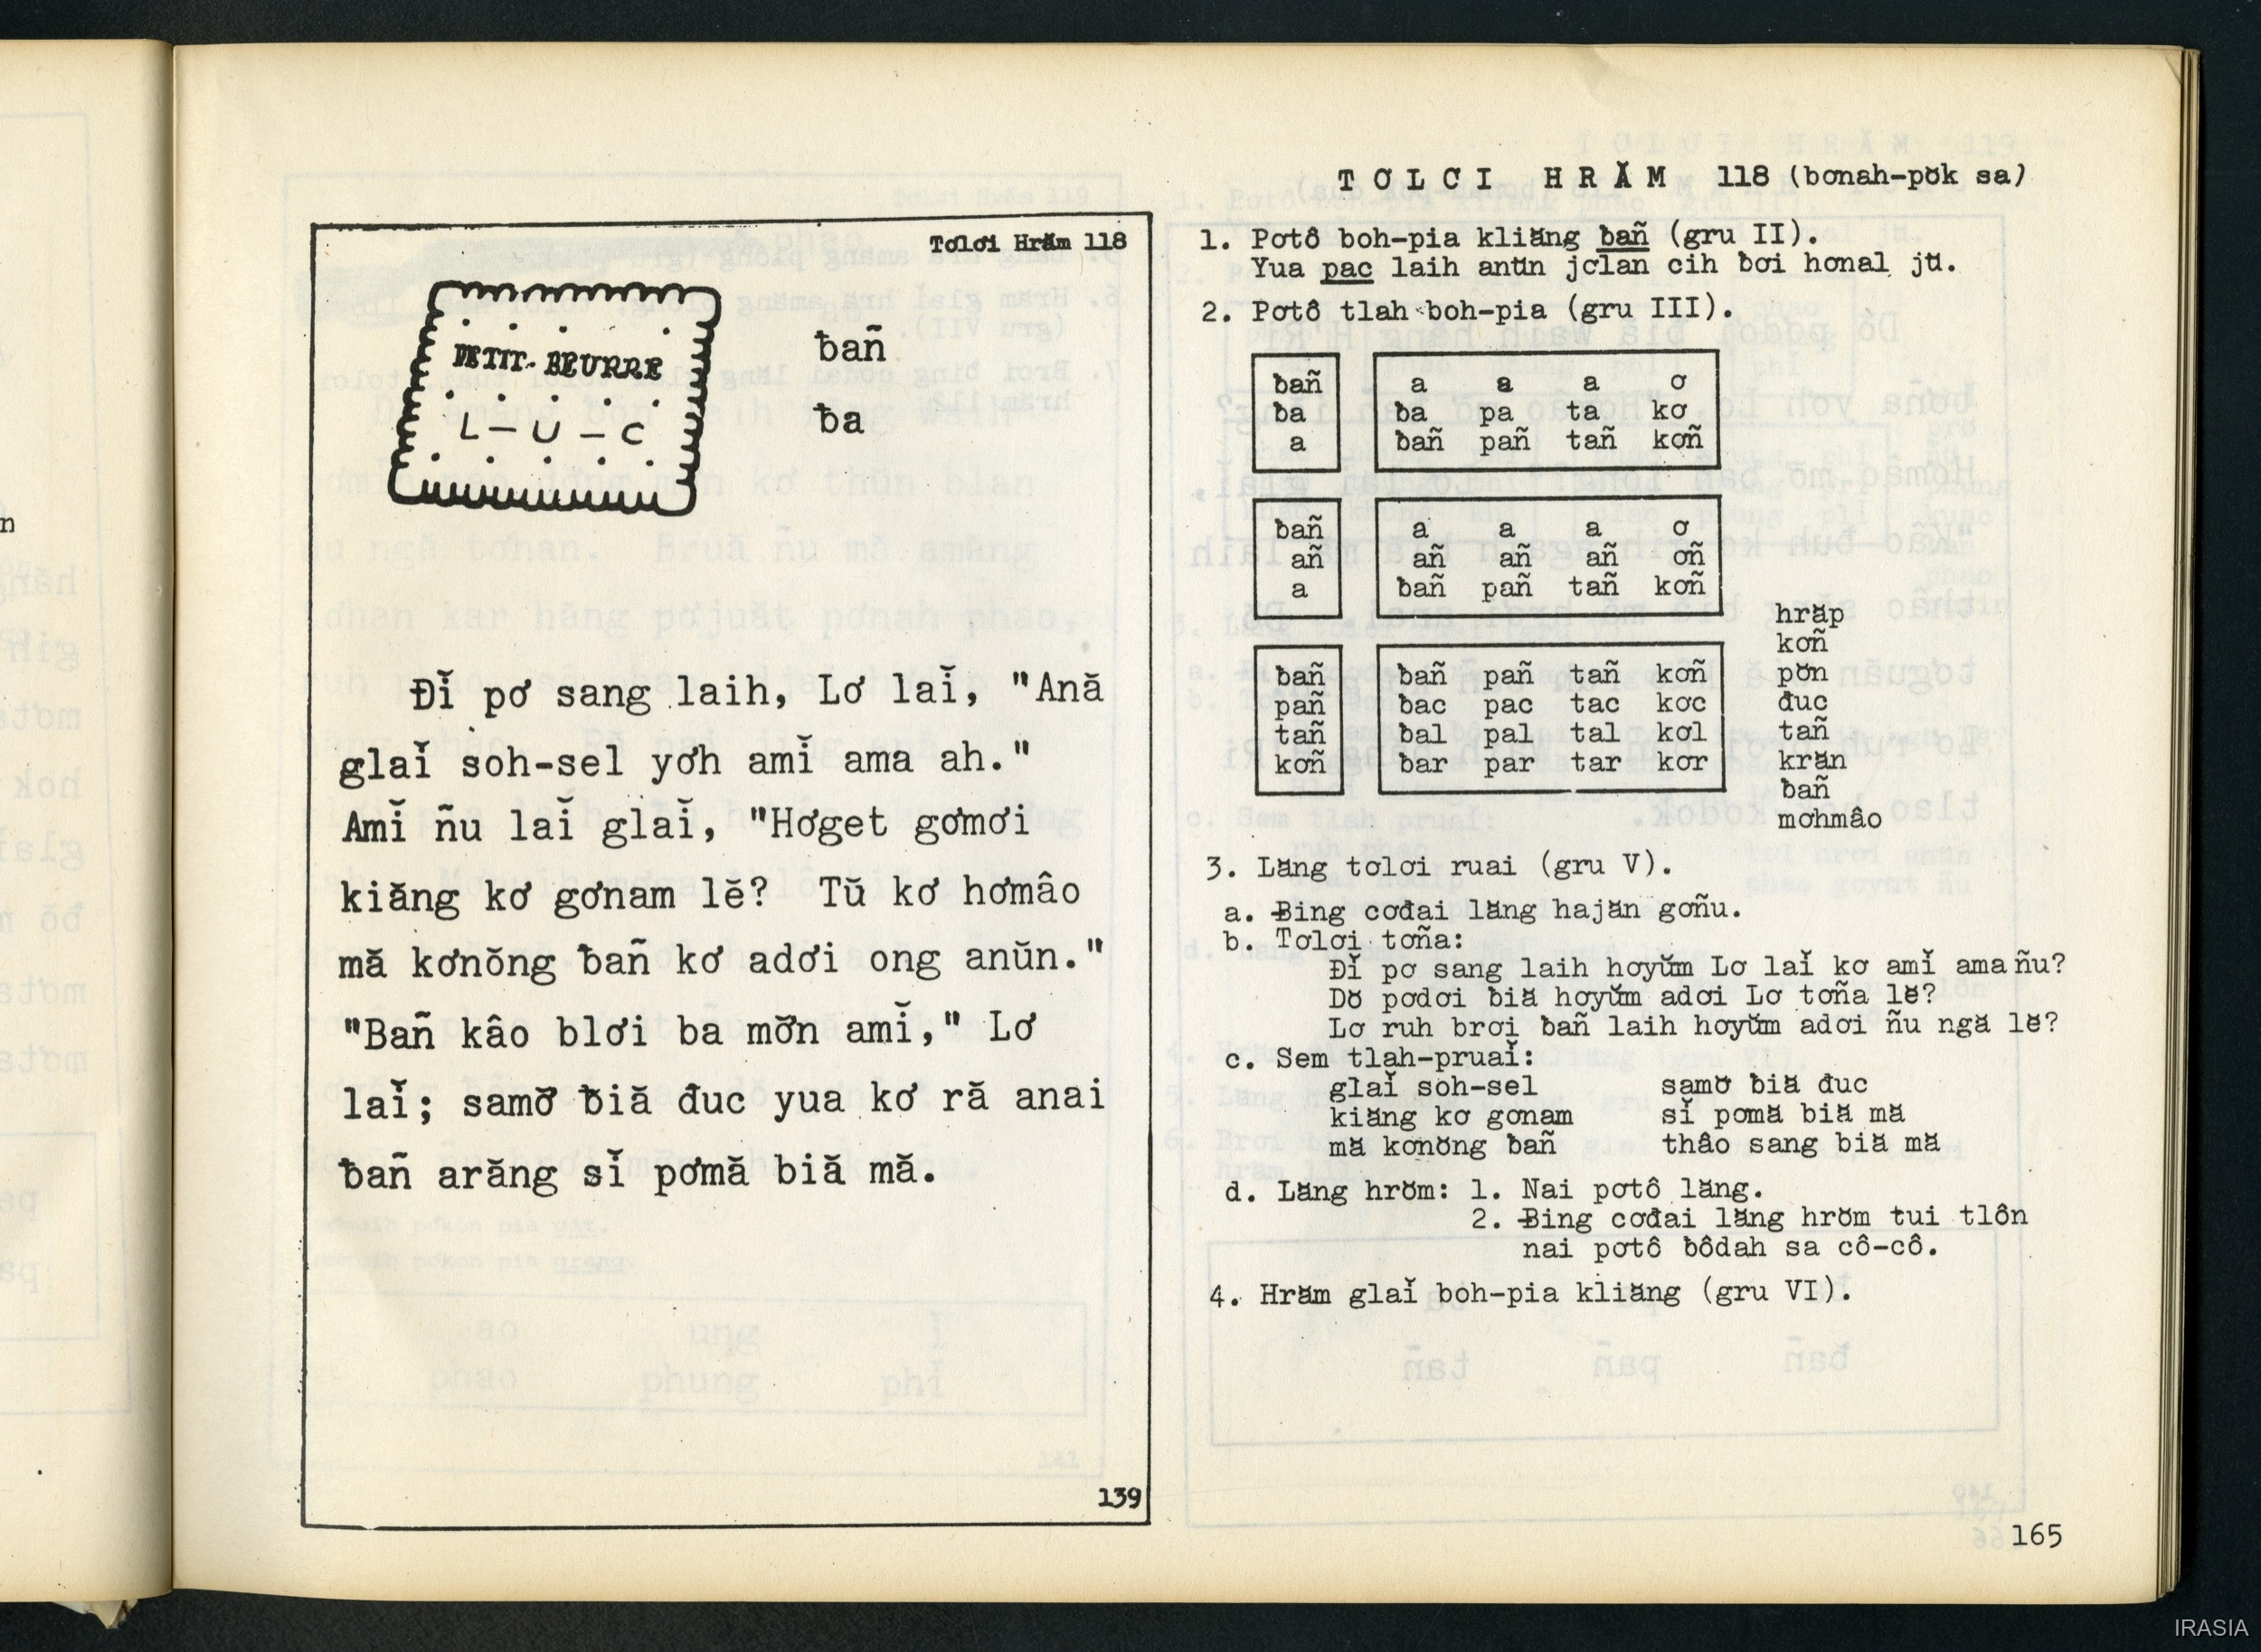 Tơlơi Hrăm 118
PETIT-BEURRE
L-U-C
ƀañ
ƀa
Đĭ pơ sang laih, Lơ laĭ, "Ană
glaĭ soh-sel yơh amĭ ama ah."
Amĭ ñu laĭ glaĭ, "Hơget gơmơi
kiăng kơ gơnam lĕ? Tŭ kơ hơmâo
mă kơnŏng ƀañ kơ adơi ong anŭn."
"Bañ kâo blơi ba mơ̆n amĭ," Lơ
laĭ; samơ̆ ƀiă đuc yua kơ ră anai
ƀañ arăng sĭ pơmă biă mă.
139
TƠLƠI HRĂM 118 (bơnah-pŏk sa)
1. Pơtô boh-pia kliăng ƀañ (gru II).
Yua pac laih anŭn jơlan cih ƀơi hơnal jŭ.
2. Pơtô tlah boh-pia (gru III).
ƀañ a a a ơ
ƀa ƀa pa ta kơ
a ƀañ pañ tañ kơñ
ƀañ a a a ơ
añ añ añ añ ơñ
a ƀañ pañ tañ kơñ
ƀañ ƀañ pañ tañ kơñ
pañ ƀac pac tac kơc
tañ ƀal pal tal kơl
kơñ ƀar par tar kơr
hrăp
kơñ
pŏn
đuc
tañ
krăn
ƀañ
mơhmâo
3. Lăng tơlơi ruai (gru V).
a. Ƀing cơđai lăng hajăn gơñu.
b. Tơlơi tơña:
Đĭ pơ sang laih hơyŭm Lơ laĭ kơ amĭ ama ñu?
Dŏ pơdơi ƀiă hơyŭm adơi Lơ tơña lĕ?
Lơ ruh brơi ƀañ laih hơyŭm adơi ñu ngă lĕ?
c. Sem tlah-pruaĭ:
glaĭ soh-sel samơ̆ ƀiă đuc
kiăng kơ gơnam sĭ pơmă biă mă
mă kơnŏng ƀañ thâo sang biă mă
d. Lăng hrŏm: 1. Nai pơtô lăng.
2. Ƀing cơđai lăng hrŏm tui tlôn
nai pơtô ƀôdah sa cô-cô.
4. Hrăm glaĭ boh-pia kliăng (gru VI).
165
IRASIA